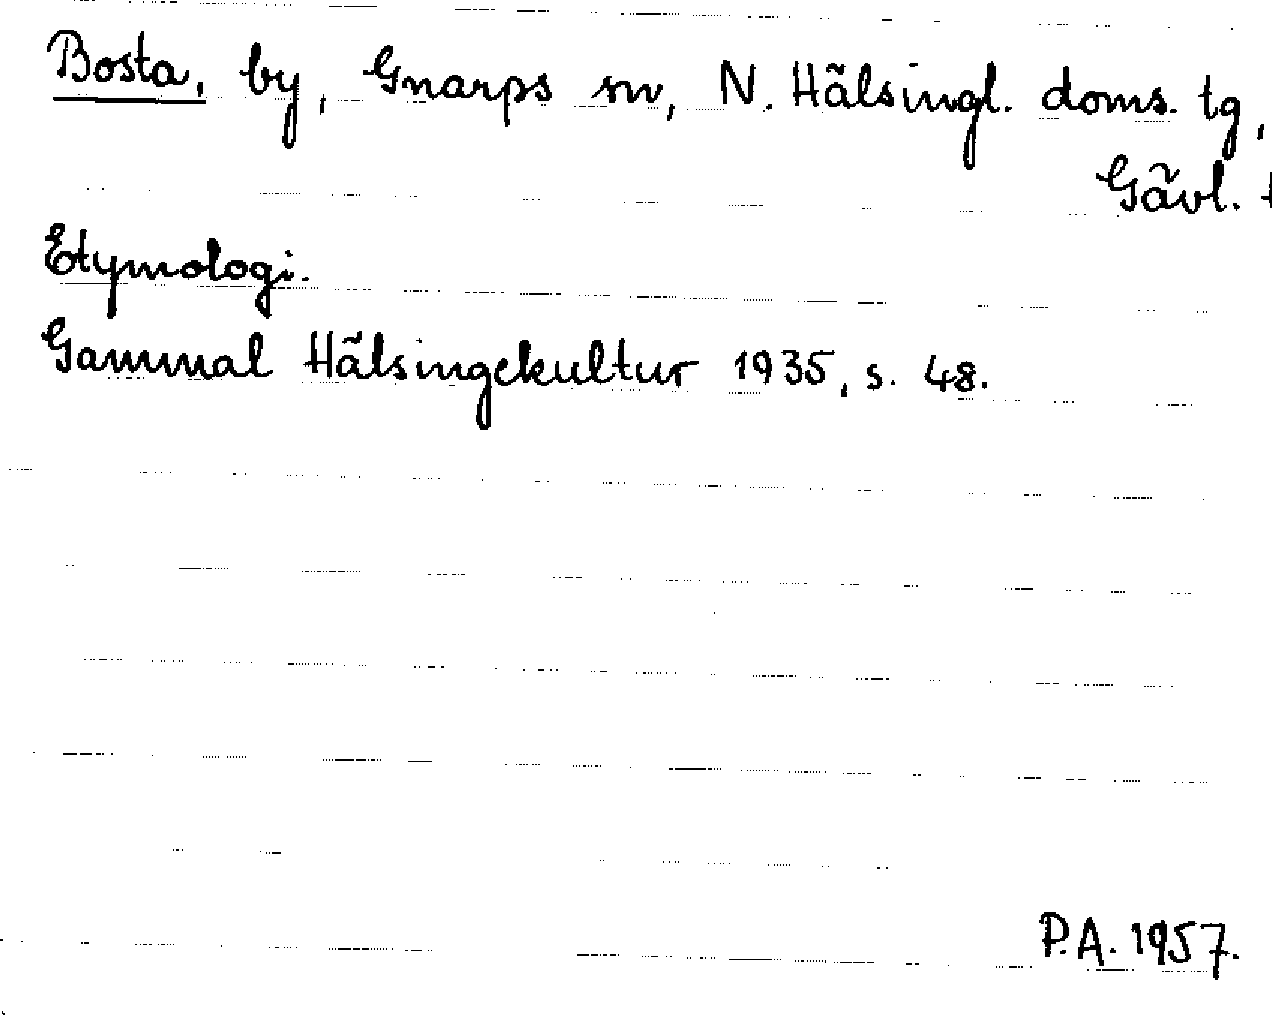 Bosta, by, Gnarps sn, N. Hälsingl. doms. tg,
Gävl.
Etymologi.
Gammal Hälsingekultur 1935, s. 48.
P.A. 1957.